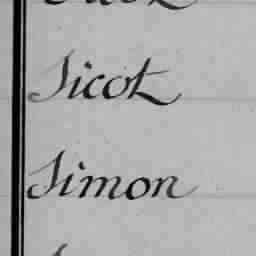 Sicot
Simon